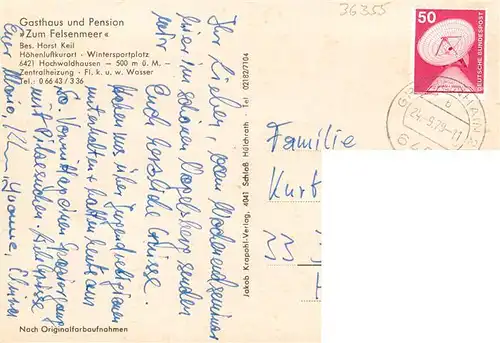 Gasthaus und Pension
»Zum Felsenmeer«
Bes. Horst Keil
Höhenluftkurort · Wintersportplatz
6421 Hochwaldhausen — 500 m ü. M. —
Zentralheizung · Fl. k. u. w. Wasser
Tel.: 0 66 43 / 3 36
Ihr Lieben, vom Wochenendseminar
hier im schönen Vogelsberg senden
Euch herzliche Grüsse.
Haben uns über Jugendreligionen
unterhalten + hatten heute am
So. Vormittag einen Spaziergang
mit Pilzesuchen. Allerliebste
Eure Maria, Yvonne,
Nach Originalfarbaufnahmen
Jakob Krapohl-Verlag, 4041 Schloß Hülchrath · Tel. 02182/7104
36355
50
DEUTSCHE BUNDESPOST
24.-9.79-11
Familie
Kurt